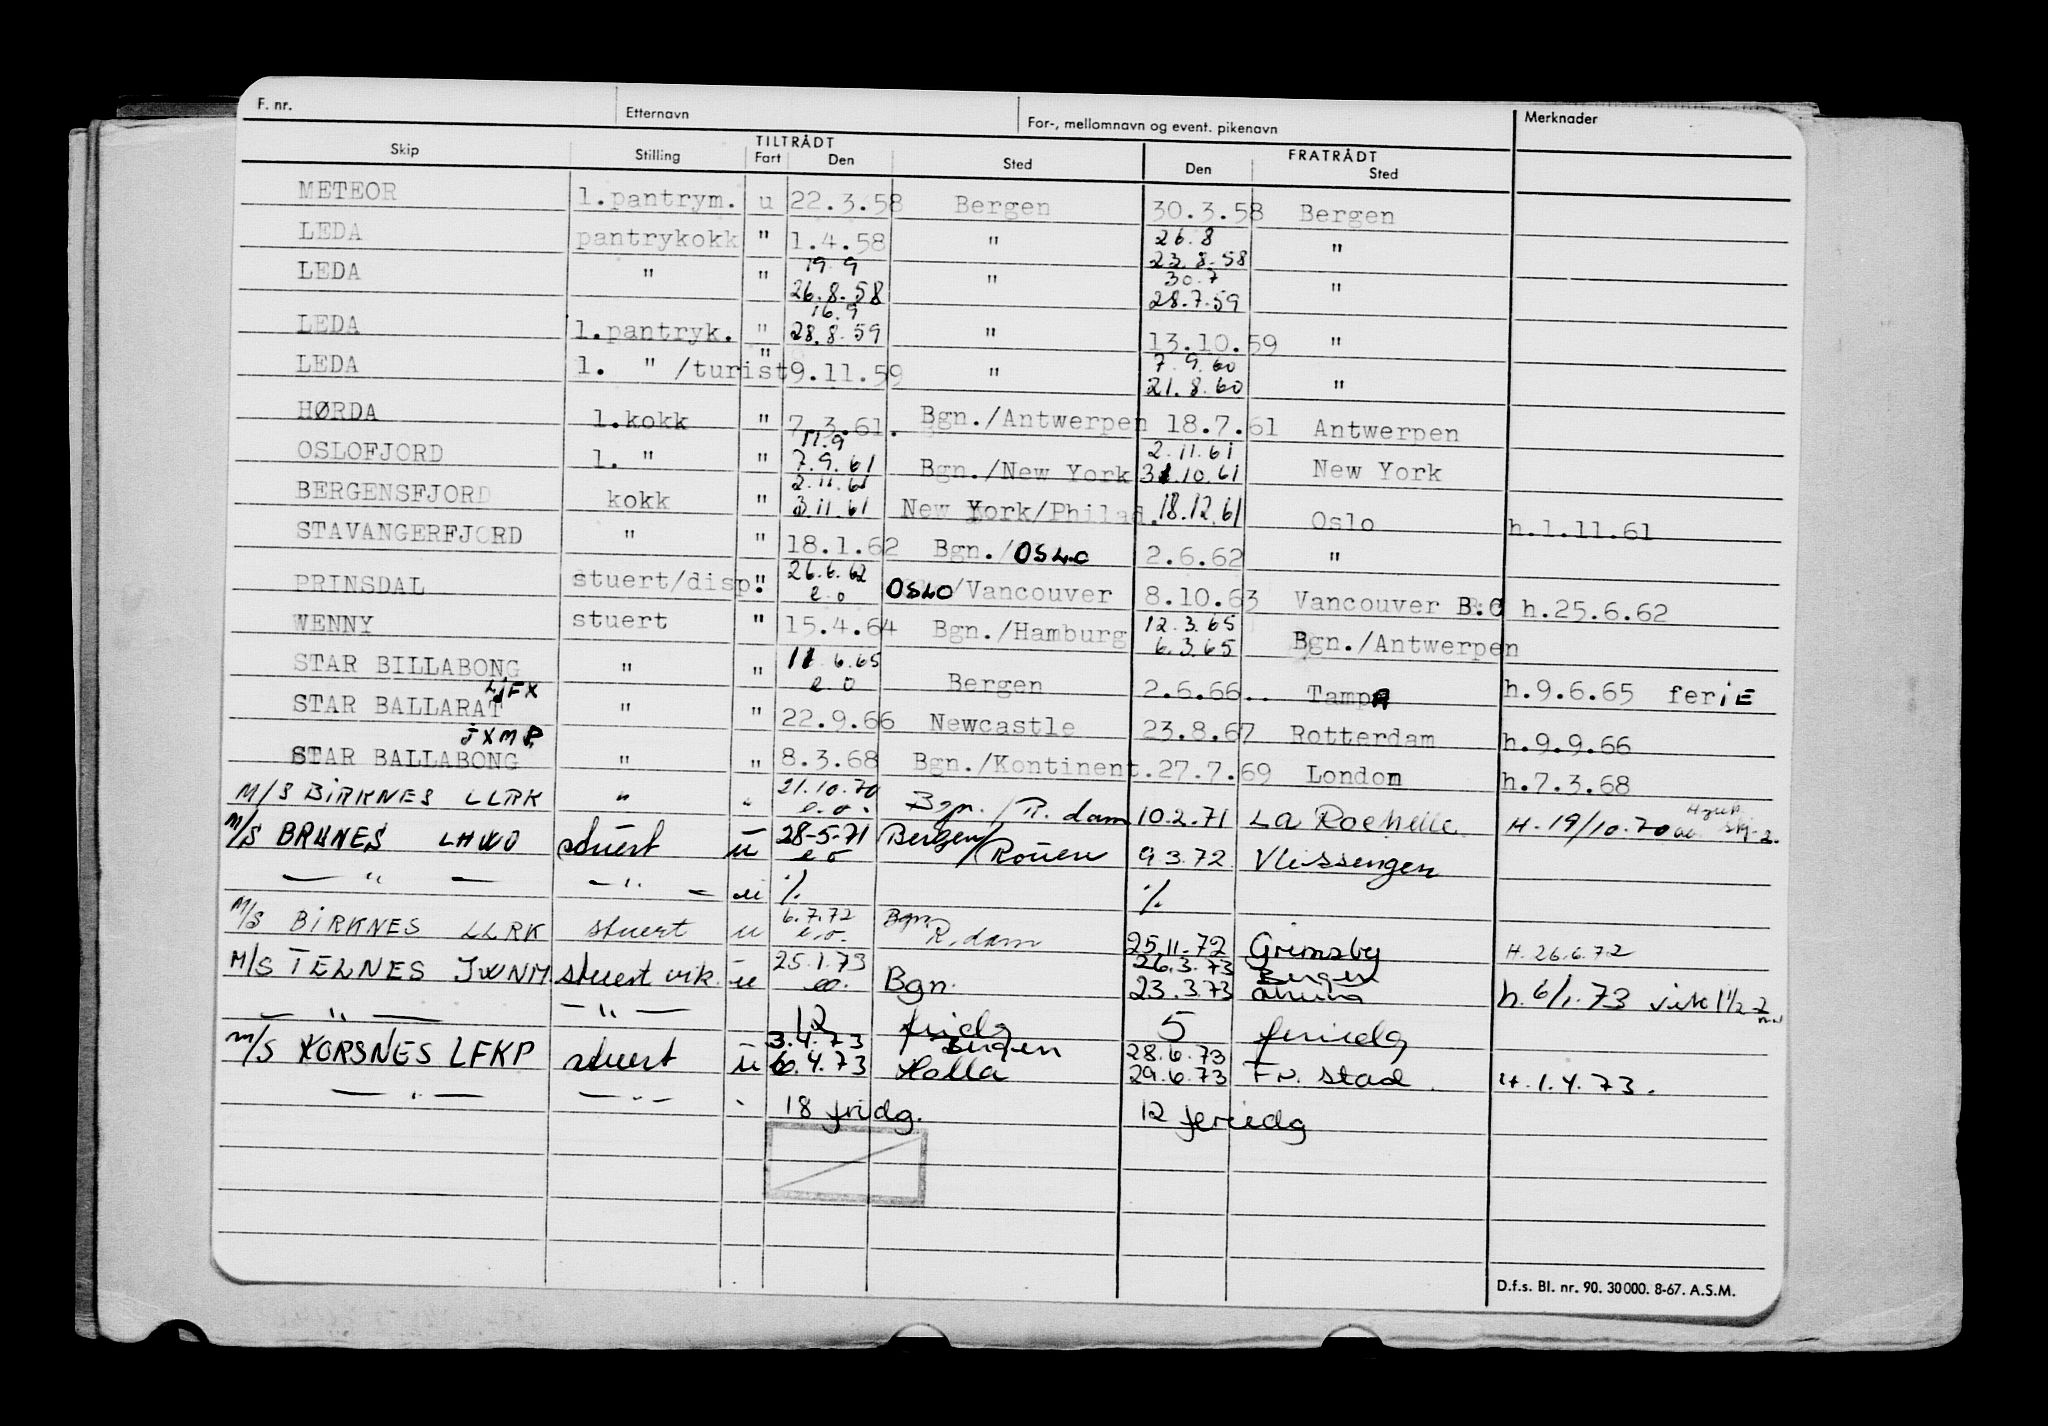 F. nr. Etternavn For-, mellomnavn og event. pikenavn Merknader
TILTRÅDT FRATRÅDT
Skip Stilling Fart Den Sted Den Sted
METEOR 1.pantrym. u 22.3.58 Bergen 30.3.58 Bergen
LEDA pantrykokk " 1.4.58 " 26.8 23.8.58 "
LEDA " " 19.9 26.8.58 " 30.7 28.7.59 "
LEDA 1.pantryk. " 16.9 28.8.59 " 13.10.59 "
LEDA 1. " /turist " 9.11.59 " 7.9.60 21.8.60 "
HØRDA 1.kokk " 7.3.61. Bgn./Antwerpen 18.7.61 Antwerpen
OSLOFJORD 1. " " 11.9 7.9.61 Bgn./New York 2.11.61 31.10.61 New York
BERGENSFJORD kokk " 2.11.61 3.11.61 New York/Philad. 18.12.61 Oslo h.1.11.61
STAVANGERFJORD " " 18.1.62 Bgn./OSLO 2.6.62 "
PRINSDAL stuert/disp. " 26.6.62 e.o OSLO/Vancouver 8.10.63 Vancouver B.C h.25.6.62
WENNY stuert " 15.4.64 Bgn./Hamburg 12.3.65 6.3.65 Bgn./Antwerpen
STAR BILLABONG " " 11.6.65 e.o Bergen 2.6.66.. Tampa h.9.6.65 feriE
LJFX
STAR BALLARAT " " 22.9.66 Newcastle 23.8.67 Rotterdam h.9.9.66
JXMP
STAR BALLABONG " " 8.3.68 Bgn./Kontinent. 27.7.69 London h.7.3.68
M/S BIRKNES LLRK " " 21.10.70 e.o. Bgn./R.dam 10.2.71 La Rochelle. H. 19/10.70
M/S BRUNES LHWO stuert u 28-5-71 e o Bergen/Rouen 9.3.72 Vlissengen
— " — — " — u % %
M/S BIRKNES LLRK stuert u 6.7.72 e.o. Bgn R.dam 25.11.72 Grimsby H. 26.6.72
M/S TELNES JWNM stuert vik. u 25.1.73 eo. Bgn. 26.3.73 23.3.73 Bergen h. 6/1.73 vik 1 1/2-2
— " — — " — 12 fridg 5 feriedg
M/S KORSNES LFKP stuert u 3.4.73 6.4.73 Bergen Holla 28.6.73 29.6.73 Fr. stad H. 1.4.73.
— " — — " — " 18 fridg. 12 feriedg
D.f.s. Bl. nr. 90. 30000. 8-67. A.S.M.